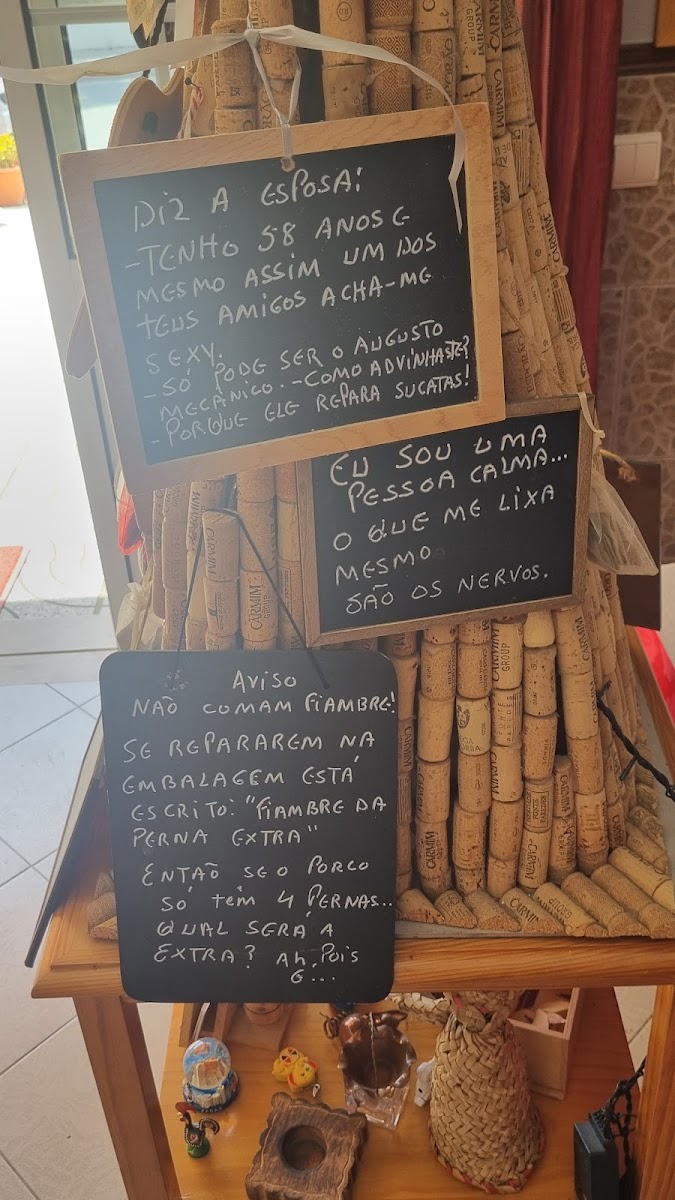 DIZ A ESPOSA:
-TENHO 58 ANOS E
MESMO ASSIM UM DOS
TEUS AMIGOS ACHA-ME
SEXY.
-SÓ PODE SER O AUGUSTO
MECÂNICO. -COMO ADVINHASTE?
-PORQUE ELE REPARA SUCATAS!
EU SOU UMA
PESSOA CALMA...
O QUE ME LIXA
MESMO
SÃO OS NERVOS.
AVISO
NÃO COMAM FIAMBRE!
SE REPARAREM NA
EMBALAGEM ESTÁ
ESCRITO: "FIAMBRE DA
PERNA EXTRA"
ENTÃO SE O PORCO
SÓ TÊM 4 PERNAS...
QUAL SERÁ A
EXTRA? AH, POIS
É...
CARMIM
CARMIM
GROUP